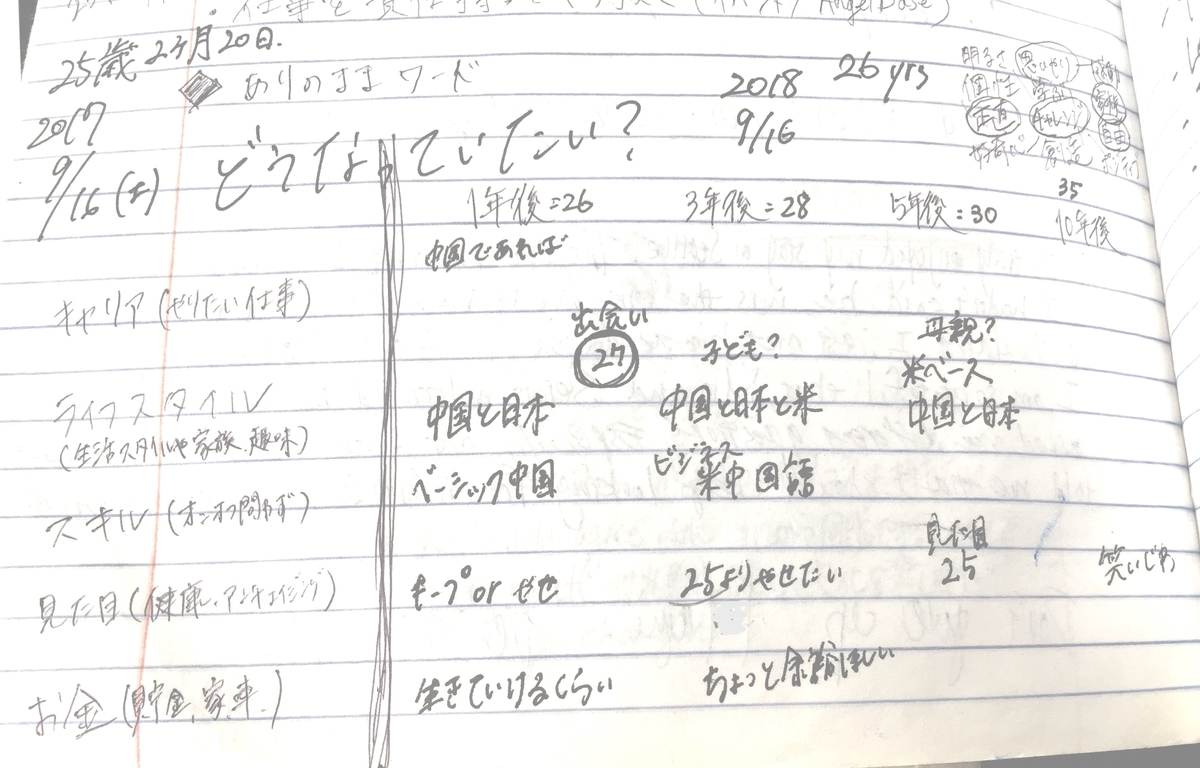 仕事を責任持って
25歳 2ヶ月20日.
ありのままワード
2018 26 yrs
明るさ 思いやり
個性
正直 チャレンジ 自由
2017
9/16 (土)
どうなっていたい?
9/16
1年後=26 3年後=28 5年後=30 35 10年後
中国であれば
キャリア (やりたい仕事)
出会い 母親?
27 子ども? 米ベース
ライフスタイル 中国と日本 中国と日本と米 中国と日本
(生活スタイルや家族、趣味)
ベーシック中国 ビジネス 米中国語
スキル (オンオフ問わず)
見た目
見た目 (健康、アンチエイジング) キープ or やせ 25よりやせたい 25 笑いじわ
お金 (貯金、家、車.) 生きていけるくらい ちょっと余裕ほしい